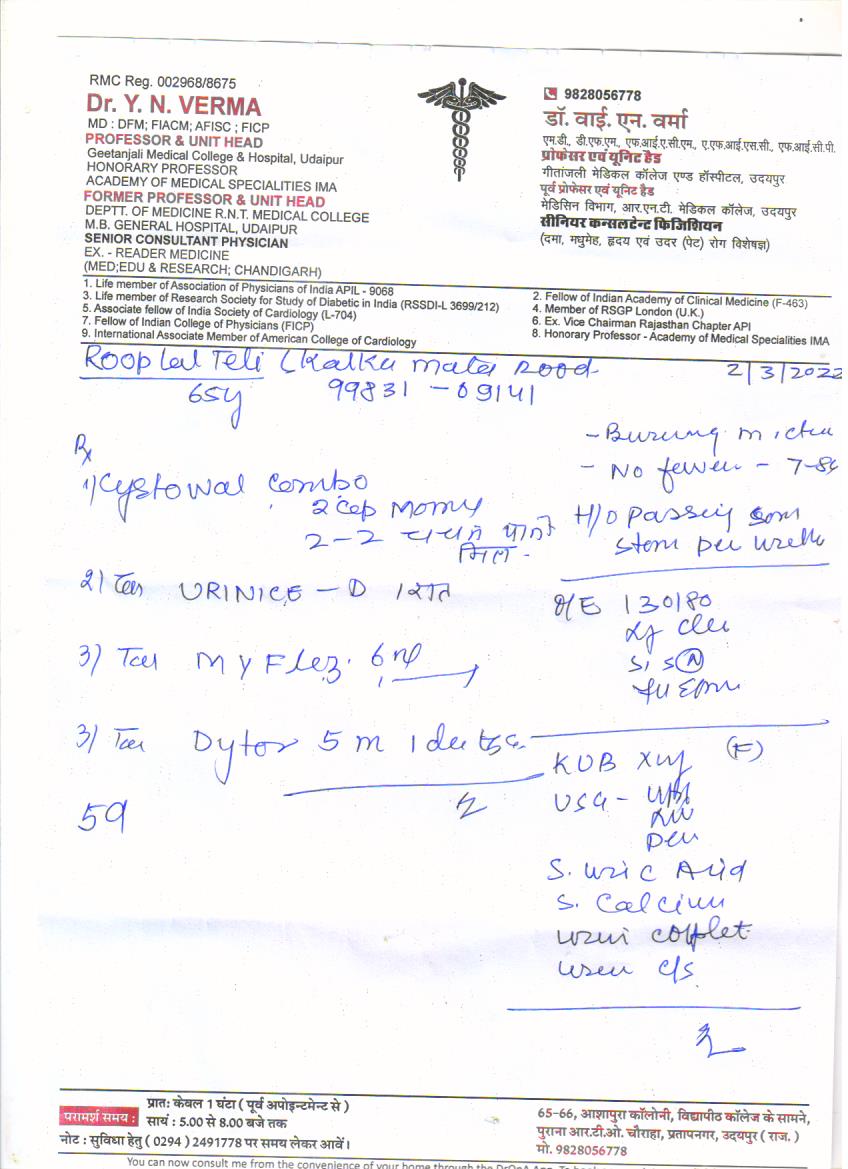 RMC Reg. 002968/8675
Dr. Y. N. VERMA
MD : DFM; FIACM; AFISC ; FICP
PROFESSOR & UNIT HEAD
Geetanjali Medical College & Hospital, Udaipur
HONORARY PROFESSOR
ACADEMY OF MEDICAL SPECIALITIES IMA
FORMER PROFESSOR & UNIT HEAD
DEPTT. OF MEDICINE R.N.T. MEDICAL COLLEGE
M.B. GENERAL HOSPITAL, UDAIPUR
SENIOR CONSULTANT PHYSICIAN
EX. - READER MEDICINE
(MED;EDU & RESEARCH; CHANDIGARH)
9828056778
डॉ. वाई. एन. वर्मा
एम.डी., डी.एफ.एम., एफ.आई.ए.सी.एम., ए.एफ.आई.एस.सी., एफ.आई.सी.पी.
प्रोफेसर एवं यूनिट हैड
गीतांजली मेडिकल कॉलेज एण्ड हॉस्पीटल, उदयपुर
पूर्व प्रोफेसर एवं यूनिट हैड
मेडिसिन विभाग, आर.एन.टी. मेडिकल कॉलेज, उदयपुर
सीनियर कन्सलटेन्ट फिजिशियन
(दमा, मधुमेह, हृदय एवं उदर (पेट) रोग विशेषज्ञ)
1. Life member of Association of Physicians of India APIL - 9068
2. Fellow of Indian Academy of Clinical Medicine (F-463)
3. Life member of Research Society for Study of Diabetic in India (RSSDI-L 3699/212)
4. Member of RSGP London (U.K.)
5. Associate fellow of India Society of Cardiology (L-704)
6. Ex. Vice Chairman Rajasthan Chapter API
7. Fellow of Indian College of Physicians (FICP)
8. Honorary Professor - Academy of Medical Specialities IMA
9. International Associate Member of American College of Cardiology
Rooplal Teli (Kalka mata Road 2/3/2022
65y 99831-09141
Rx
1) Cystowal combo
2-2
2) URINICE - D
3) Tab
3) Tab Dytor 5 m
59
- Burning
- No
H/O passing
O/E 130/80
KUB (F)
USG -
S. uric Acid
S. Calcium
c/s
परामर्श समय :
प्रातः केवल 1 घंटा ( पूर्व अपोइन्टमेन्ट से )
सायं : 5.00 से 8.00 बजे तक
नोट : सुविधा हेतु ( 0294 ) 2491778 पर समय लेकर आवें।
65-66, आशापुरा कॉलोनी, विद्यापीठ कॉलेज के सामने,
पुराना आर.टी.ओ. चौराहा, प्रतापनगर, उदयपुर ( राज. )
मो. 9828056778
You can now consult me from the convenience of your home through the